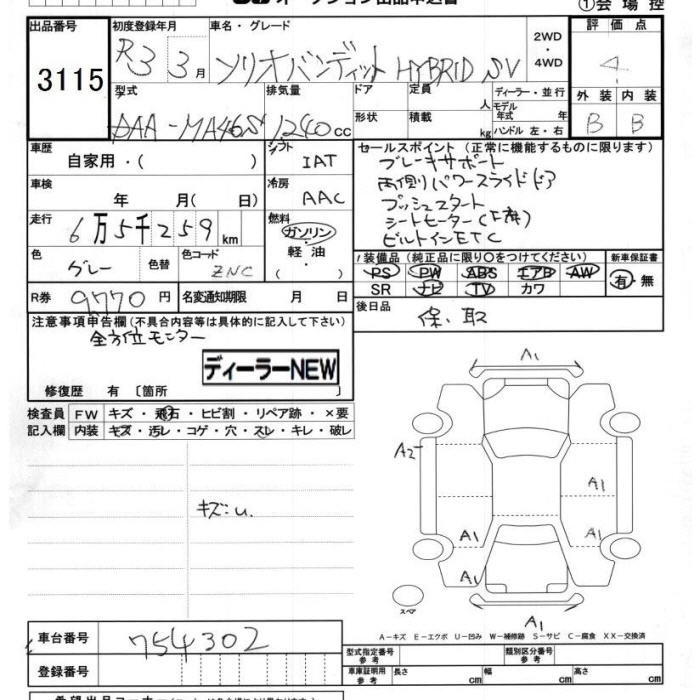 オークション出品申込書
①会場控
出品番号
3115
初度登録年月
R3 3月
車名・グレード
ソリオバンディット HYBRID SV
2WD
・
4WD
評価点
4
外装 内装
B B
型式
DAA-MA46S
排気量
1240cc
ドア
形状
定員
人
積載
kg
ディーラー・並行
モデル年式 年
ハンドル 左・右
車歴
自家用・( )
シフト
IAT
車検
年 月( 日)
冷房
AAC
走行
6万5千259km
燃料
ガソリン
軽油
( )
色
グレー
色替
色コード
ZNC
R券 9770円
名変通知期限 月 日
セールスポイント(正常に機能するものに限ります)
ブレーキサポート
両側パワースライドドア
プッシュスタート
シートヒーター(F席)
ビルトインETC
装備品(純正品に限り○をつけてください)
新車保証書
PS PW ABS エアB AW
SR ナビ TV カワ
有・無
後日品
保、取
注意事項申告欄(不具合内容等は具体的に記入して下さい)
全方位モニター
ディーラーNEW
修復歴 有 〔箇所 〕
検査員記入欄
FW キズ・飛石・ヒビ割・リペア跡・×要
内装 キズ・汚レ・コゲ・穴・スレ・キレ・破レ
キズ:u.
A1
A2
A1
A1
A1
A1
A1
スペア
A1
A-キズ E-エクボ U-凹み W-補修跡 S-サビ C-腐食 XX-交換済
車台番号 754302
登録番号
型式指定番号
参考
類別区分番号
参考
車庫証明用
参考
長さ cm
幅 cm
高さ cm